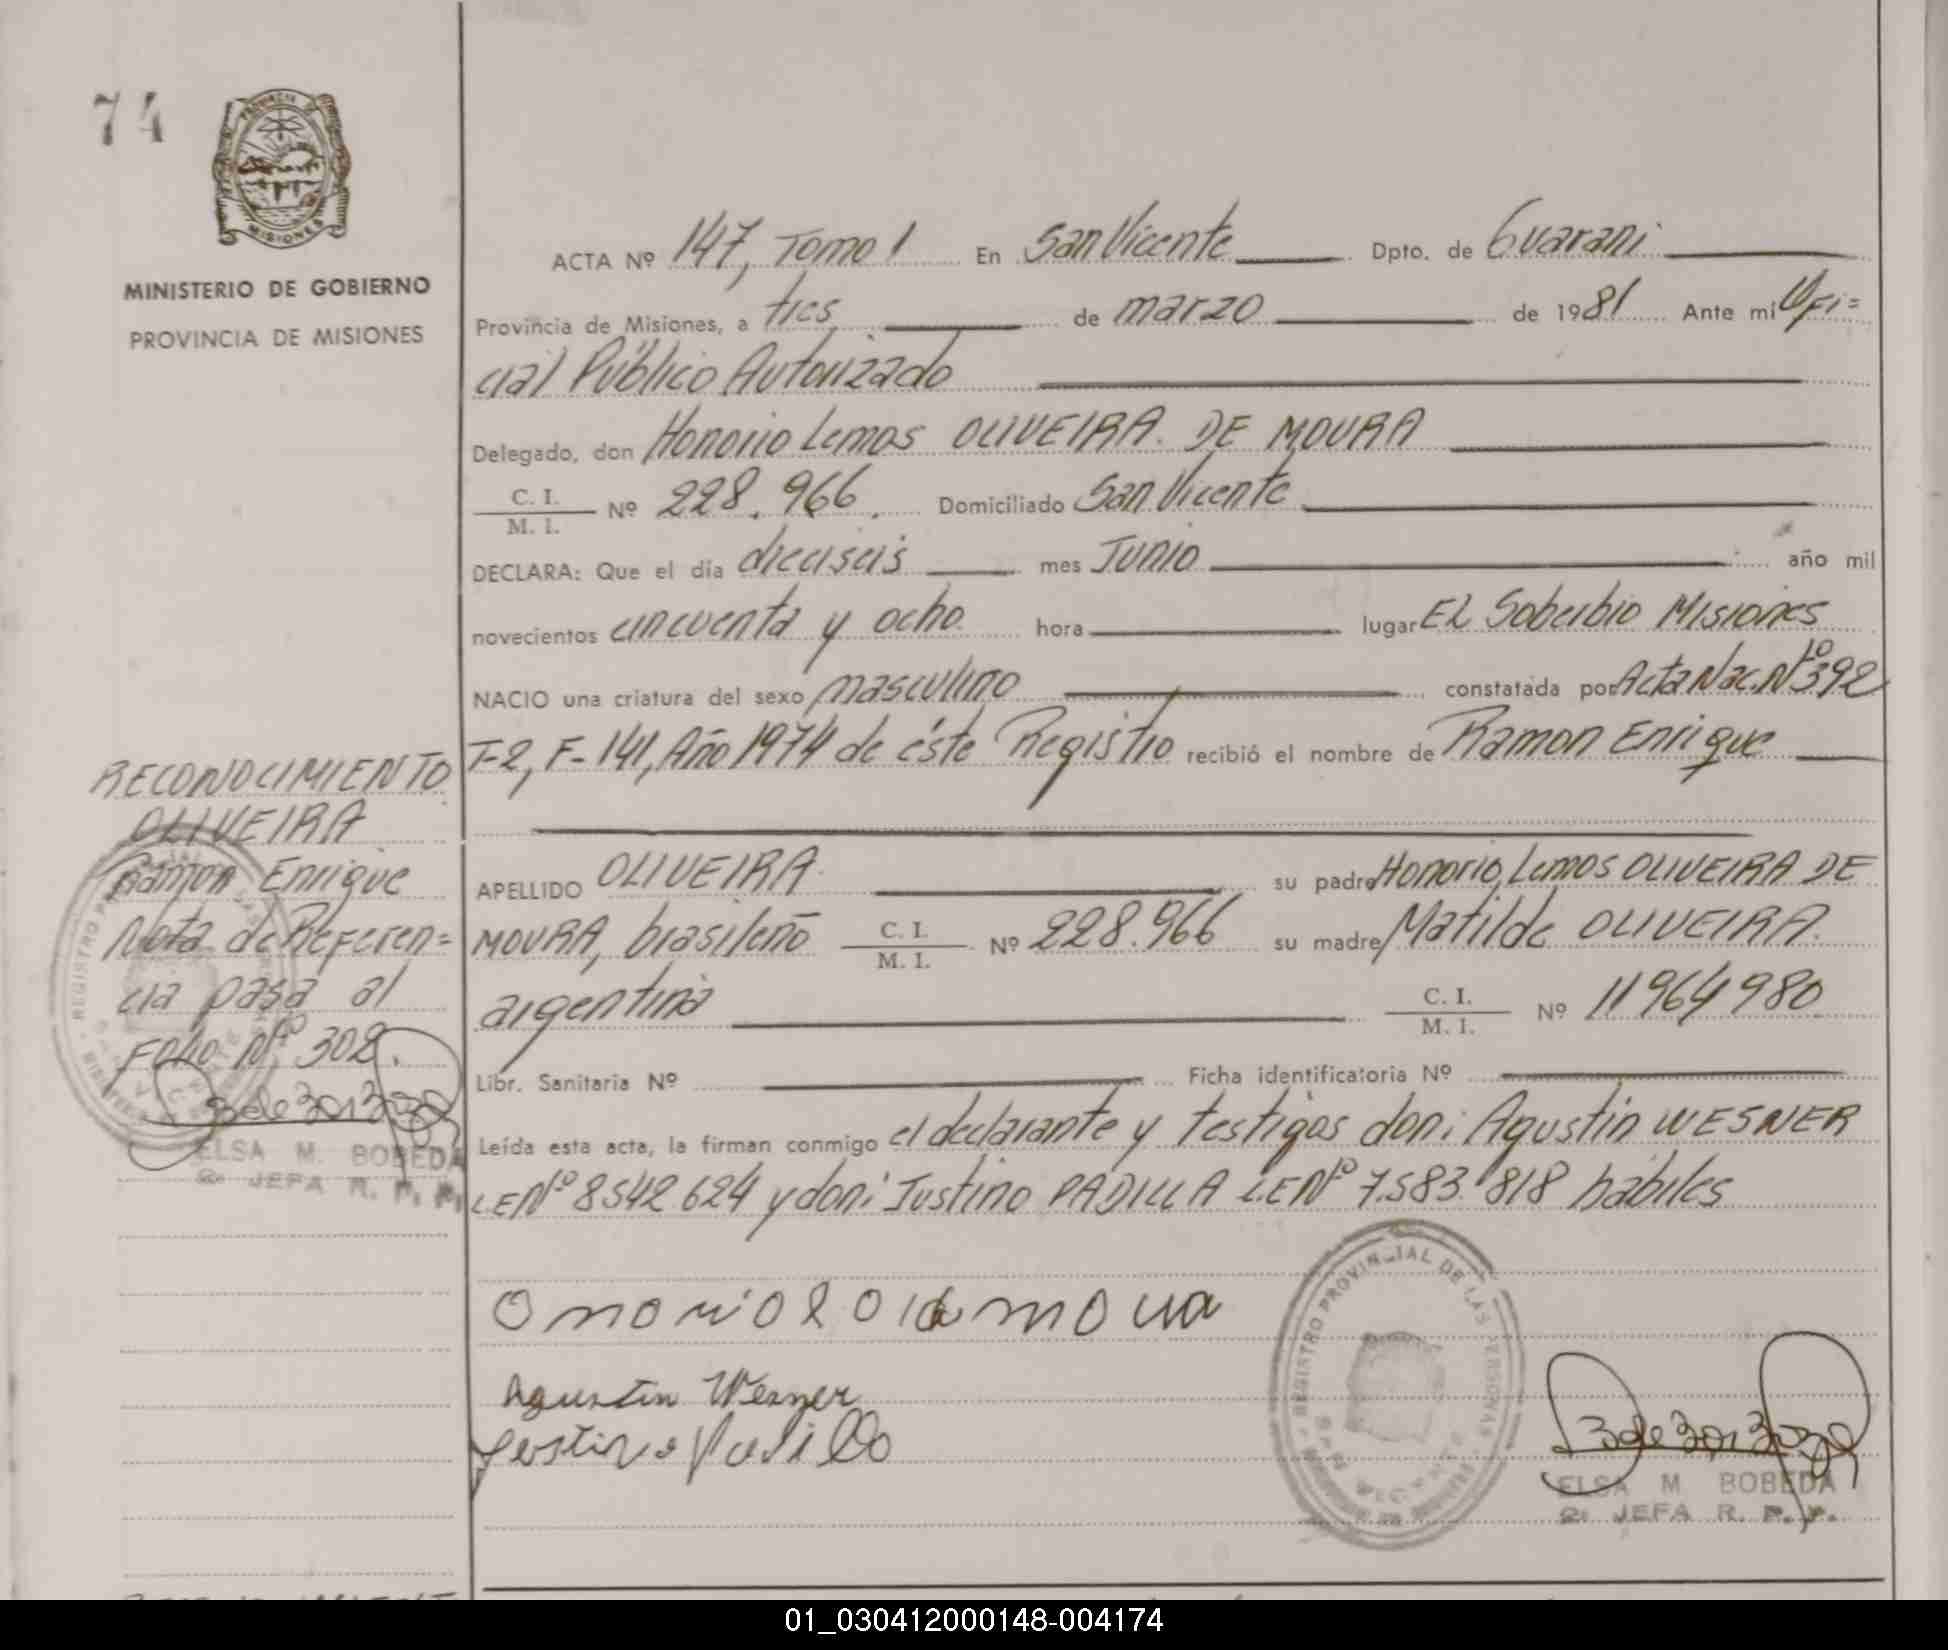 74
PROVINCIA DE
MISIONES
MINISTERIO DE GOBIERNO
PROVINCIA DE MISIONES
ACTA Nº 147, Tomo 1 En San Vicente Dpto. de Guarani
Provincia de Misiones, a tres de marzo de 1981 Ante mi Ofi=
cial Público Autorizado
Delegado, don Honorio Lemos OLIVEIRA DE MOURA
C. I.
M. I. Nº 228.966. Domiciliado San Vicente
DECLARA: Que el día dieciseis mes Junio año mil
novecientos cincuenta y ocho hora lugar El Soberbio Misiones
NACIO una criatura del sexo masculino constatada por Acta Nac. Nº 392
T-2, F-141, Año 1974 de éste Registro recibió el nombre de Ramon Enrique
APELLIDO OLIVEIRA su padre Honorio Lemos OLIVEIRA DE
MOURA, brasileño C. I.
M. I. Nº 228.966 su madre Matilde OLIVEIRA
argentina C. I.
M. I. Nº 11964980
Libr. Sanitaria Nº Ficha identificatoria Nº
Leída esta acta, la firman conmigo el declarante y testigos don: Agustin WESNER
LE Nº 8542624 y don: Justino PADILLA L.E Nº 7.583.818 hábiles
RECONOCIMIENTO
OLIVEIRA
Ramon Enrique
Nota de Referen=
cia pasa al
Folio Nº 302.
ELSA M. BOBEDA
JEFA R. P. P.
Agustin Wesner
Justino Padillo
REGISTRO PROVINCIAL DE LAS PERSONAS
SAN VICENTE
ELSA M BOBEDA
JEFA R. P. P.
01_030412000148-004174